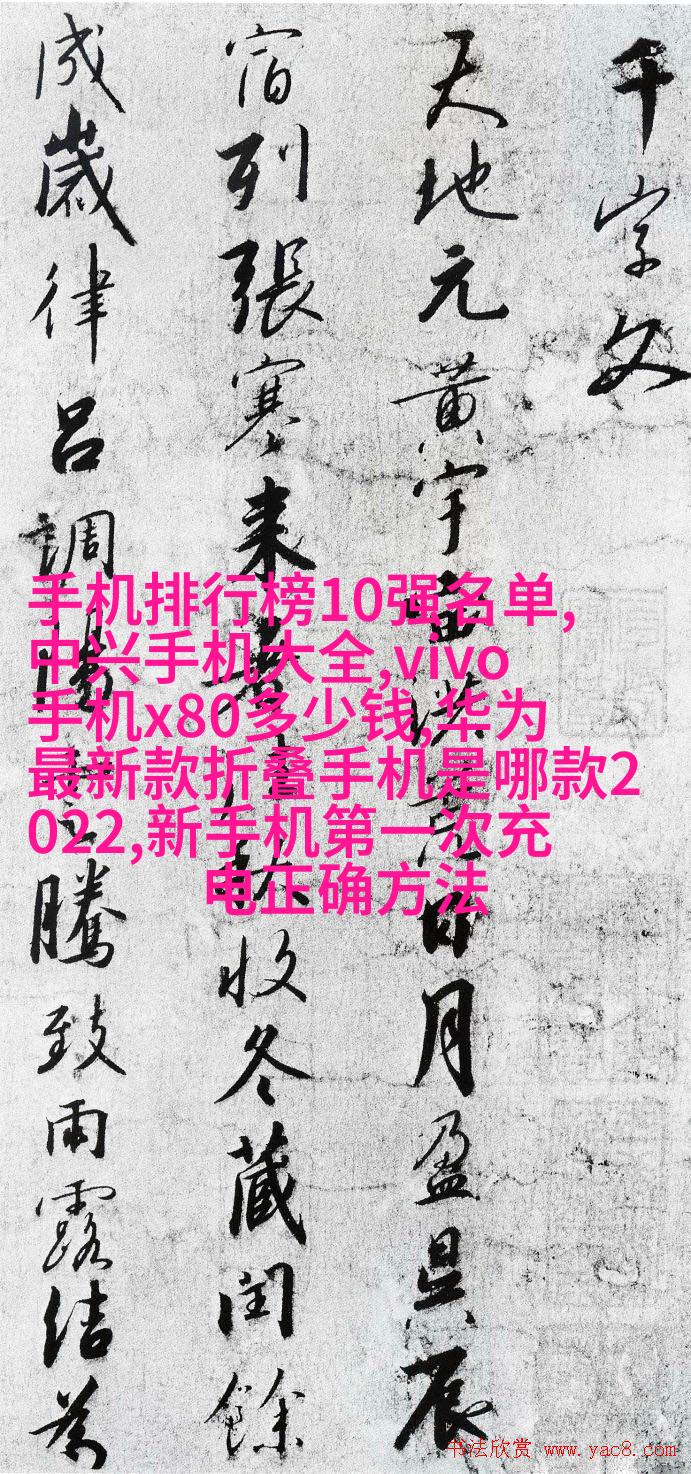 千字文
天地元黄宇宙洪荒日月盈昃辰
宿列張寒来暑往秋收冬藏閏餘
成歲律呂調陽雲騰致雨露結為
手机排行榜10强名单,
中兴手机大全,vivo
手机x80多少钱,华为
最新款折叠手机是哪款2
022,新手机第一次充
电正确方法
书法欣赏 www.yac8.com